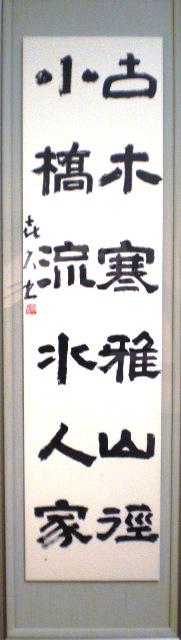 古木寒雅山徑
小橋流水人家